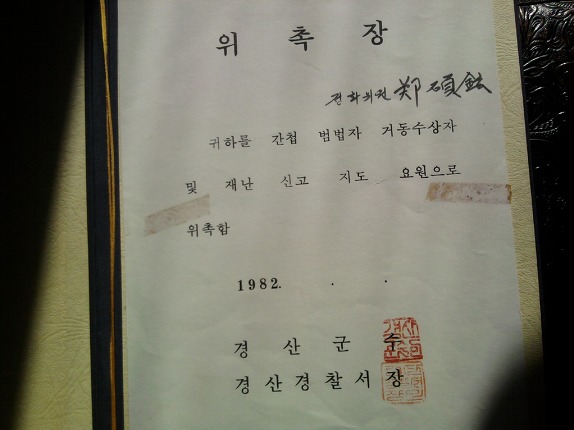 위촉장
전화회원 鄭碩鉉
귀하를 간첩 범법자 거동수상자
및 재난 신고 지도 요원으로
위촉함
1982. . .
경산군수
경산경찰서장